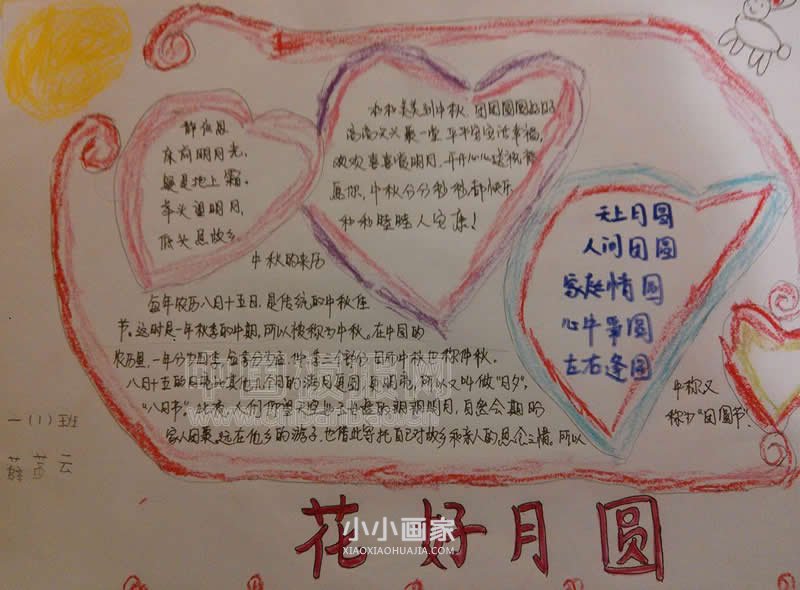 静夜思
床前明月光，
疑是地上霜。
举头望明月，
低头思故乡。
和和美美到中秋，团团圆圆
高高兴兴聚一堂，平平安安话幸福，
欢欢喜喜赏明月，开开心心送祝
愿你，中秋分分秒秒都快乐
和和睦睦人安康！
天上月圆
人间团圆
家庭情圆
心中事圆
左右逢圆
中秋的来历
每年农历八月十五日，是传统的中秋佳
节。这时是一年秋季的中期，所以被称为中秋。在中国的
农历里，一年分为四季，每季分为孟、仲、季三个部分，因而中秋也称仲秋。
八月十五的月亮比其他几个月的满月更圆，更明亮，所以又叫做“月夕”，
“八月节”。此夜，人们仰望天空如玉如盘的朗朗明月，自然会期盼
家人团聚。远在他乡的游子，也借此寄托自己对故乡和亲人的思念之情。所以
中秋又
称为“团圆节”。
一（1）班
花好月圆
小小画家
XIAOXIAOHUAJIA.COM